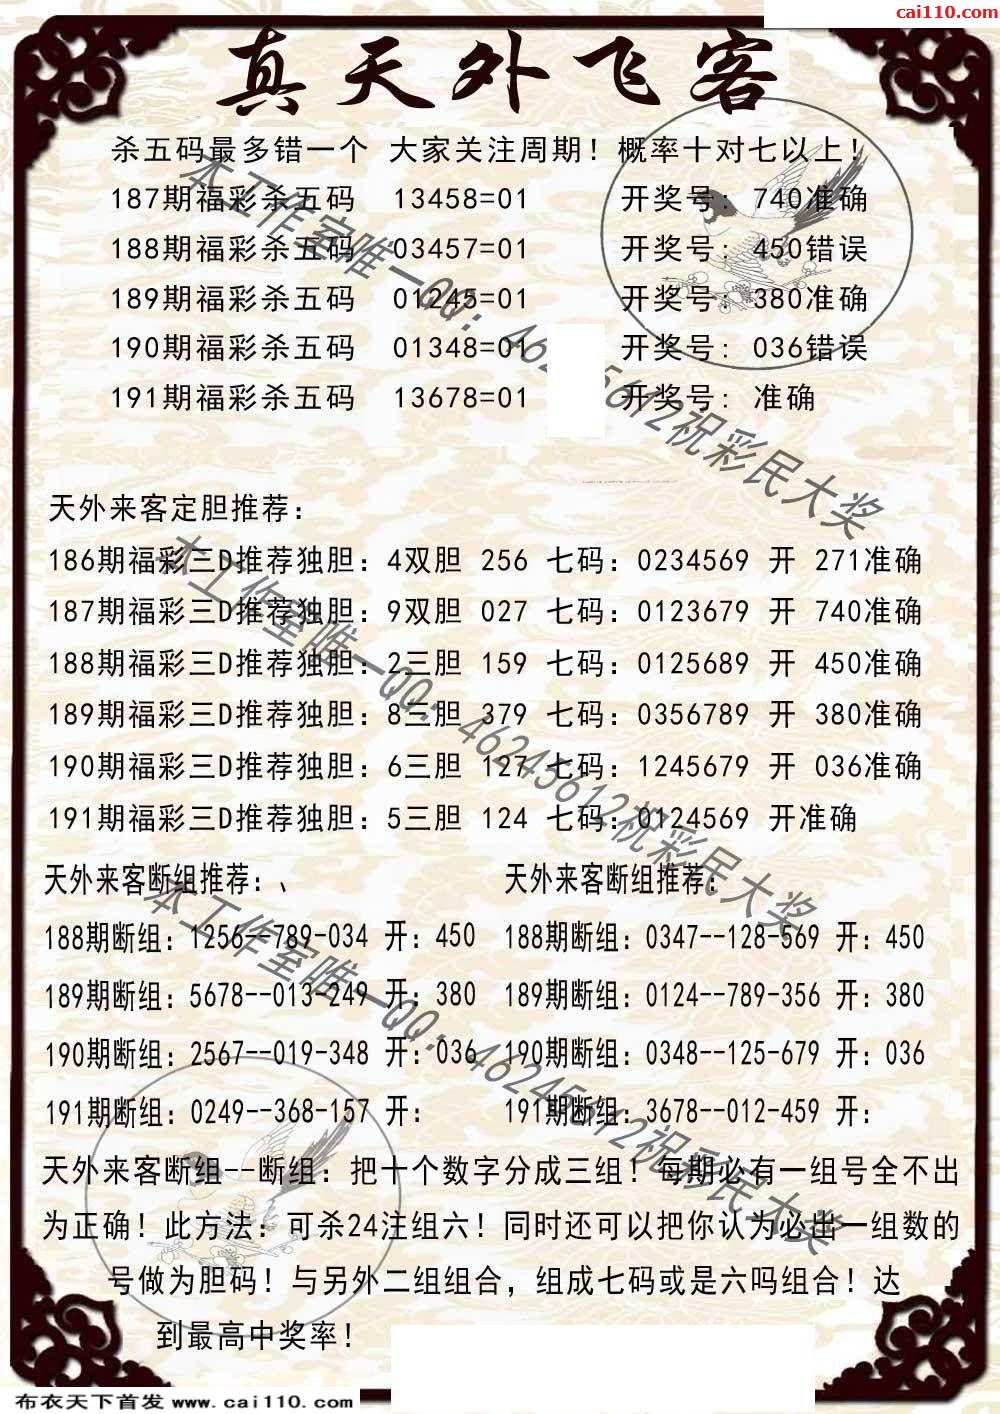 cai110.com
真天外飞客
杀五码最多错一个 大家关注周期！概率十对七以上！
187期福彩杀五码 13458=01 开奖号：740准确
188期福彩杀五码 03457=01 开奖号：450错误
189期福彩杀五码 01245=01 开奖号：380准确
190期福彩杀五码 01348=01 开奖号：036错误
191期福彩杀五码 13678=01 开奖号：准确
本工作室唯一QQ：46245612祝彩民大奖
天外来客定胆推荐：
186期福彩三D推荐独胆：4双胆 256 七码：0234569 开 271准确
187期福彩三D推荐独胆：9双胆 027 七码：0123679 开 740准确
188期福彩三D推荐独胆：2三胆 159 七码：0125689 开 450准确
189期福彩三D推荐独胆：8三胆 379 七码：0356789 开 380准确
190期福彩三D推荐独胆：6三胆 127 七码：1245679 开 036准确
191期福彩三D推荐独胆：5三胆 124 七码：0124569 开准确
本工作室唯一QQ：46245612祝彩民大奖
天外来客断组推荐：、 天外来客断组推荐：
188期断组：1256--789-034 开：450 188期断组：0347--128-569 开：450
189期断组：5678--013-249 开：380 189期断组：0124--789-356 开：380
190期断组：2567--019-348 开：036 190期断组：0348--125-679 开：036
191期断组：0249--368-157 开： 191期断组：3678--012-459 开：
本工作室唯一QQ：46245612祝彩民大奖
天外来客断组--断组：把十个数字分成三组！每期必有一组号全不出
为正确！此方法：可杀24注组六！同时还可以把你认为必出一组数的
号做为胆码！与另外二组组合，组成七码或是六吗组合！达
到最高中奖率！
布衣天下首发 www.cai110.com